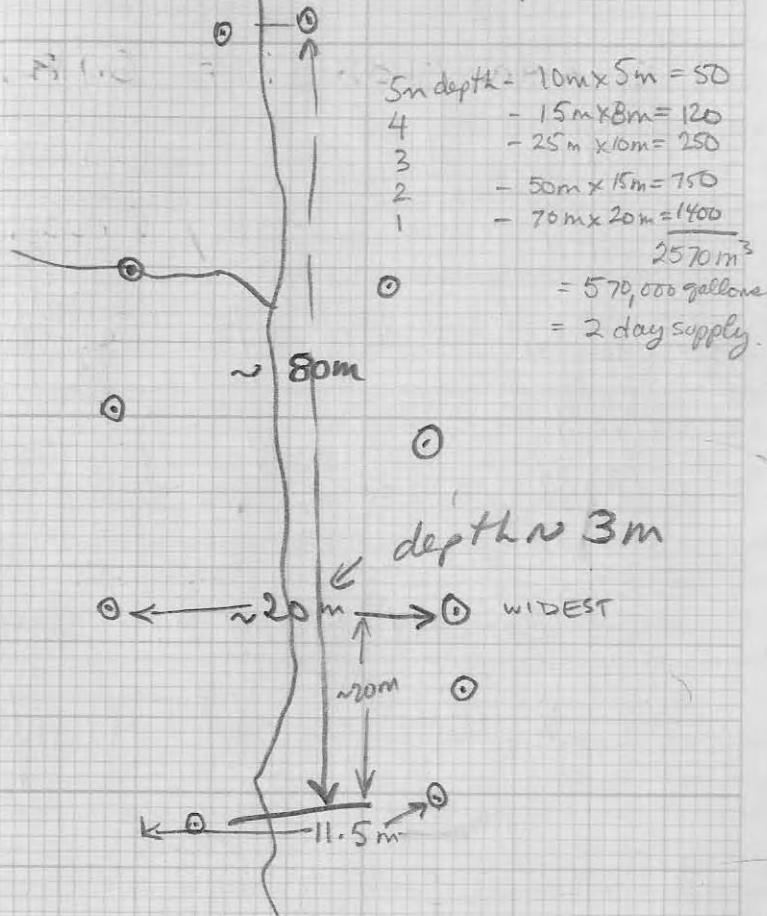 5m depth - 10m x 5m = 50
4 - 15m x 8m = 120
3 - 25m x 10m = 250
2 - 50m x 15m = 750
1 - 70m x 20m = 1400
2570 m³
= 570,000 gallons
= 2 day supply.
~ 80m
depth ~ 3m
~20m WIDEST
~20m
11.5m